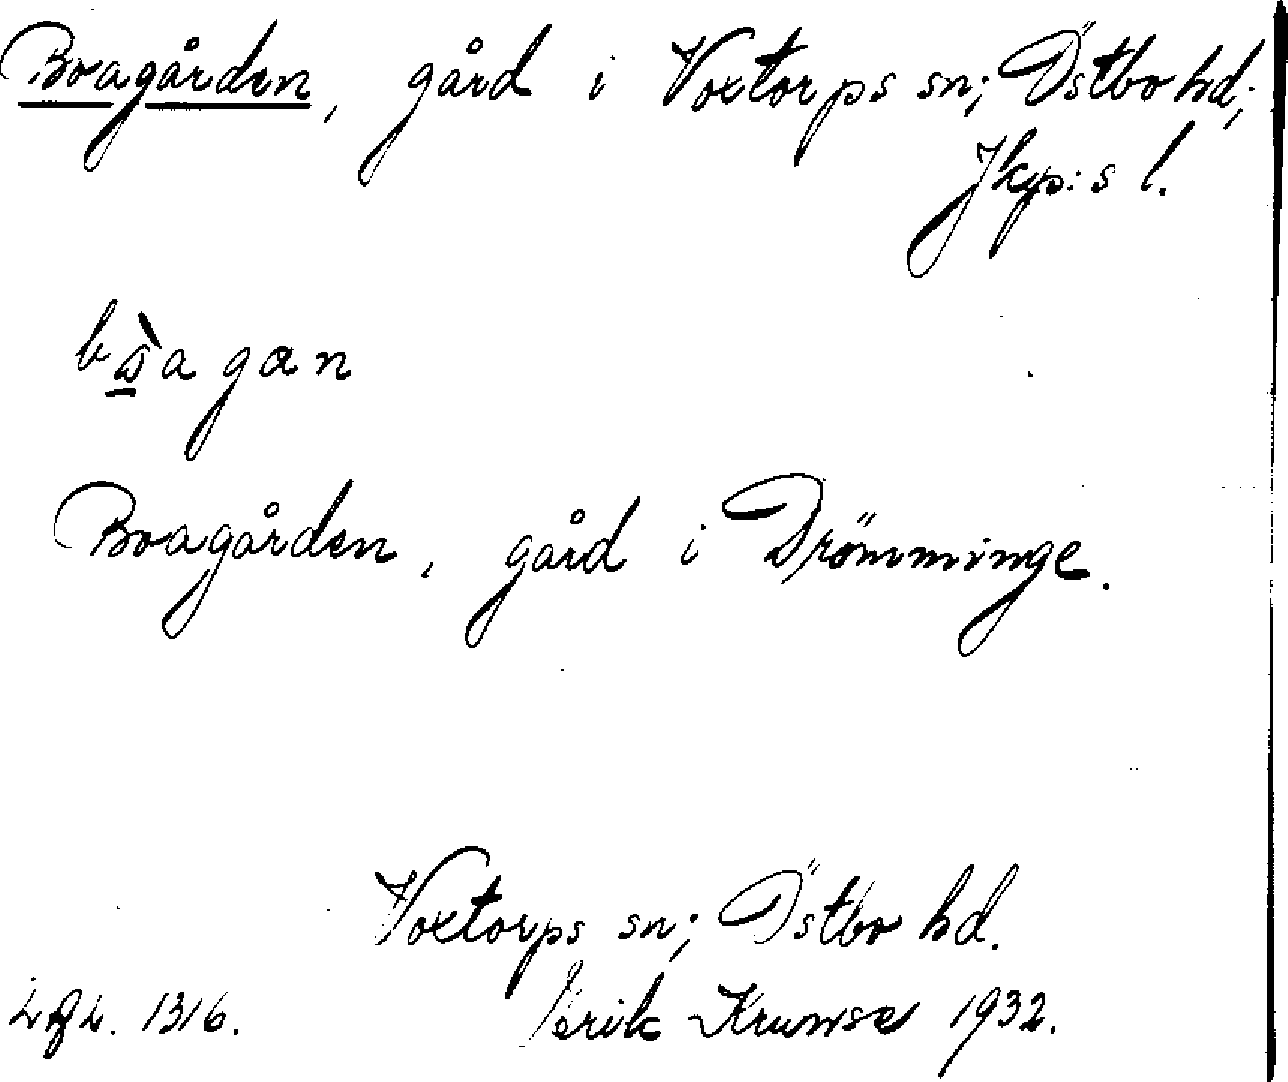 Boagården, gård i Voxtorps sn; Östbo hd;
Jkp:s l.
Boagården, gård i Drömminge.
Voxtorps sn; Östbo hd.
1316. Erik Krunse 1932.